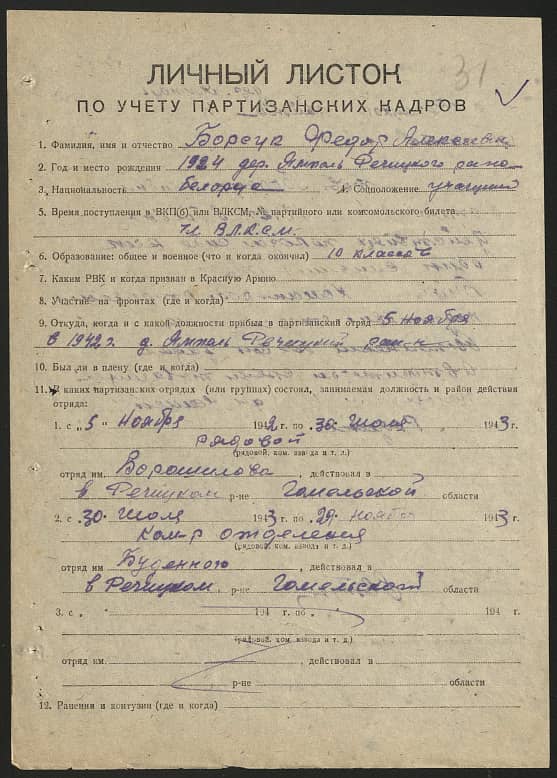 31
ЛИЧНЫЙ ЛИСТОК
ПО УЧЕТУ ПАРТИЗАНСКИХ КАДРОВ
1. Фамилия, имя и отчество Борсук Федор Алексеевич
2. Год и место рождения 1924 дер. Ямполь Речицкого района
3. Национальность белорус 4. Соцположение учащийся
5. Время поступления в ВКП(б) или ВЛКСМ, № партийного или комсомольского билета
чл ВЛКСМ.
6. Образование: общее и военное (что и когда окончил) 10 классов
7. Каким РВК и когда призван в Красную Армию
8. Участие на фронтах (где и когда)
9. Откуда, когда и с какой должности прибыл в партизанский отряд 5 ноября
в 1942 г. д. Ямполь Речицкий район
10. Был ли в плену (где и когда)
11. В каких партизанских отрядах (или группах) состоял, занимаемая должность и район действия
отряда:
1. с „5" Ноября 1942 г. по 30 Июля 1943 г.
рядовой
(рядовой. ком. взвода и т. д.)
отряд им. Ворошилова, действовал в
в Речицком р-не Гомельской области
2. с 30 Июля 1943 г. по 29 Ноября 1943 г.
Ком-р отделения
(рядовой, ком. взвода и т. д.)
отряд им Буденного действовал в
в Речицком, р-не Гомельской области
3. с 194 г. по 194 г.
(рядовой. ком взвода и т. д.)
отряд им. действовал в
р-не области
12. Ранения и контузии (где и когда)